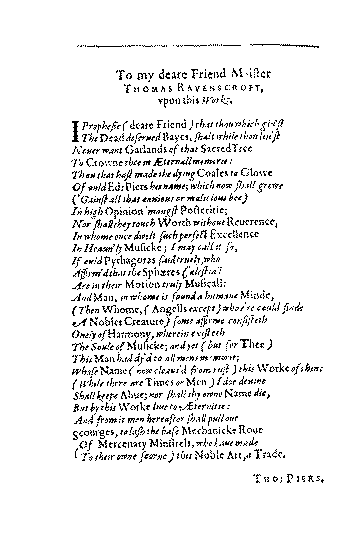 To my deare Friend Maister
THOMAS RAVENSCROFT,
vpon this Worke.
I Prophesie (deare Friend) that thou which giu'st
The Dead deserued Bayes, shalt while thou liu'st
Neuer want Garlands of that Sacred Tree
To Crowne thee in Æternall memorie:
Thou that hast made the dying Coales to Glowe
Of ould Ed: Piers his name; which now shall growe
('Gainst all that enuious or malicious bee)
In high Opinion 'mongst Posteritie;
Nor shall they touch Worth without Reuerence,
In whome once dwelt such perfect Excellence
In Heau'nly Musicke; I may call it so,
If ould Pythagoras said truely, who
Affirm'd that the Sphæres Celestiall
Are in their Motion truly Musicall:
And Man, in whome is found a humane Minde,
(Then Whome, (Angells except) who're could finde
A Nobler Creature) some affirme consisteth
Onely of Harmony, wherein existeth
The Soule of Musicke; and yet (but for Thee)
This Man had dy'd to all mens memorie;
Whose Name (now cleans'd from rust) this Worke of thine
(While there are Times or Men) I doe deuine
Shall keepe Aliue; nor shall thy owne Name die,
But by this Worke liue to Æternitie:
And from it men hereafter shall pull out
scourges, to lash the base Mechanicke Rout
Of Mercenary Minstrels, who haue made
(To their owne scorne) this Noble Art, a Trade.
THO: PIERS.